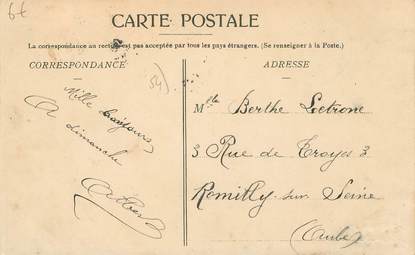 6€
CARTE POSTALE
La correspondance au recto n'est pas acceptée par tous les pays étrangers. (Se renseigner à la Poste.)
CORRESPONDANCE
54)
Mille bonjours
A dimanche
ADRESSE
Mlle Berthe Letrone
3 Rue de Troyes 3
Romilly sur Seine
(Aube)